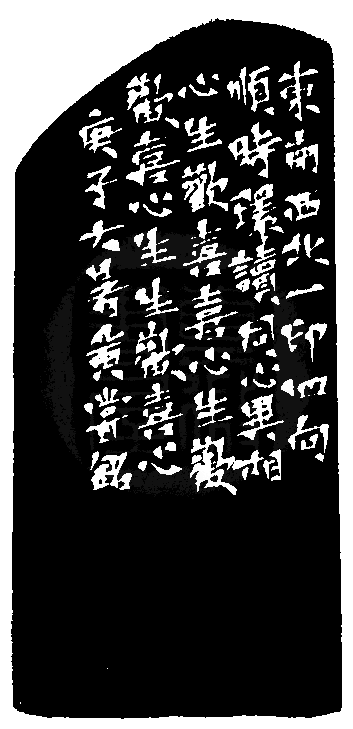 東南西北一印四向
順時環讀同心異相
心生歡喜喜心生歡
歡喜心生生歡喜心
庚子大暑黃嘗銘